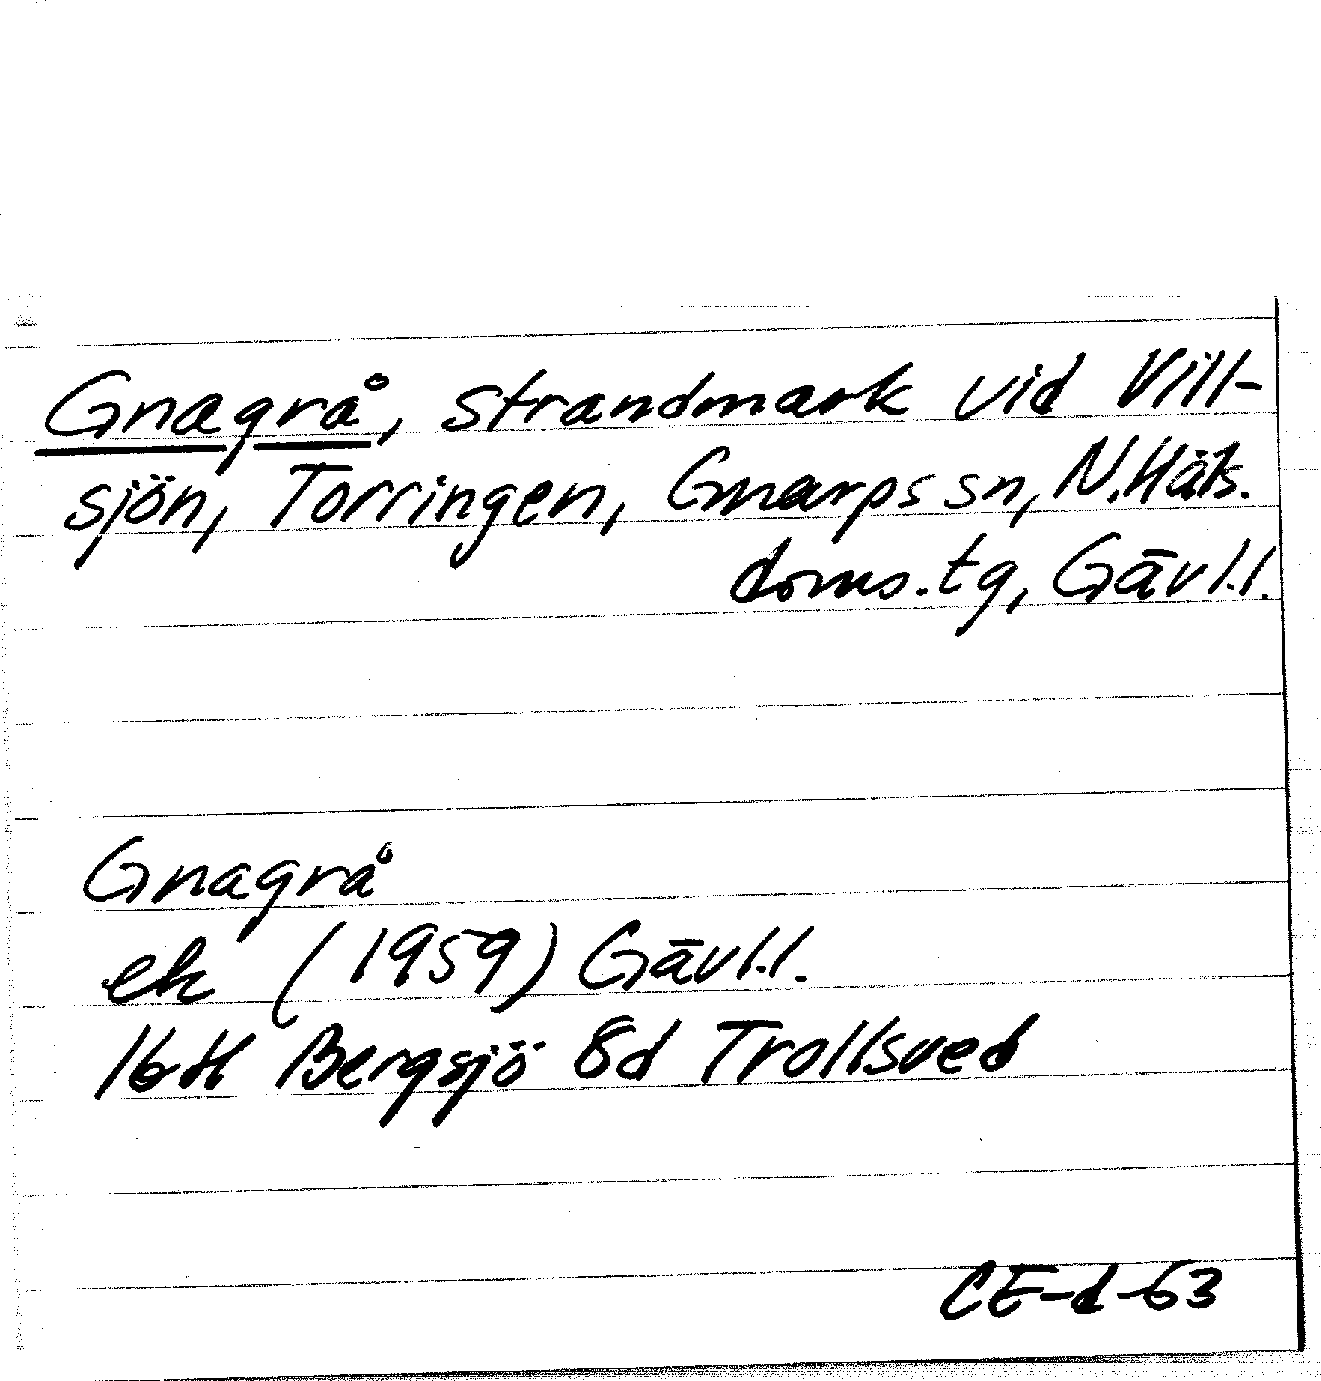 Gnagrå, strandmark vid Vill-
sjön, Torringen, Gnarps sn, N. Häls.
doms.tg, Gävl.l.
Gnagrå
ek (1959) Gävl.l.
16H Bergsjö 8d Trollsved
CE-d-63